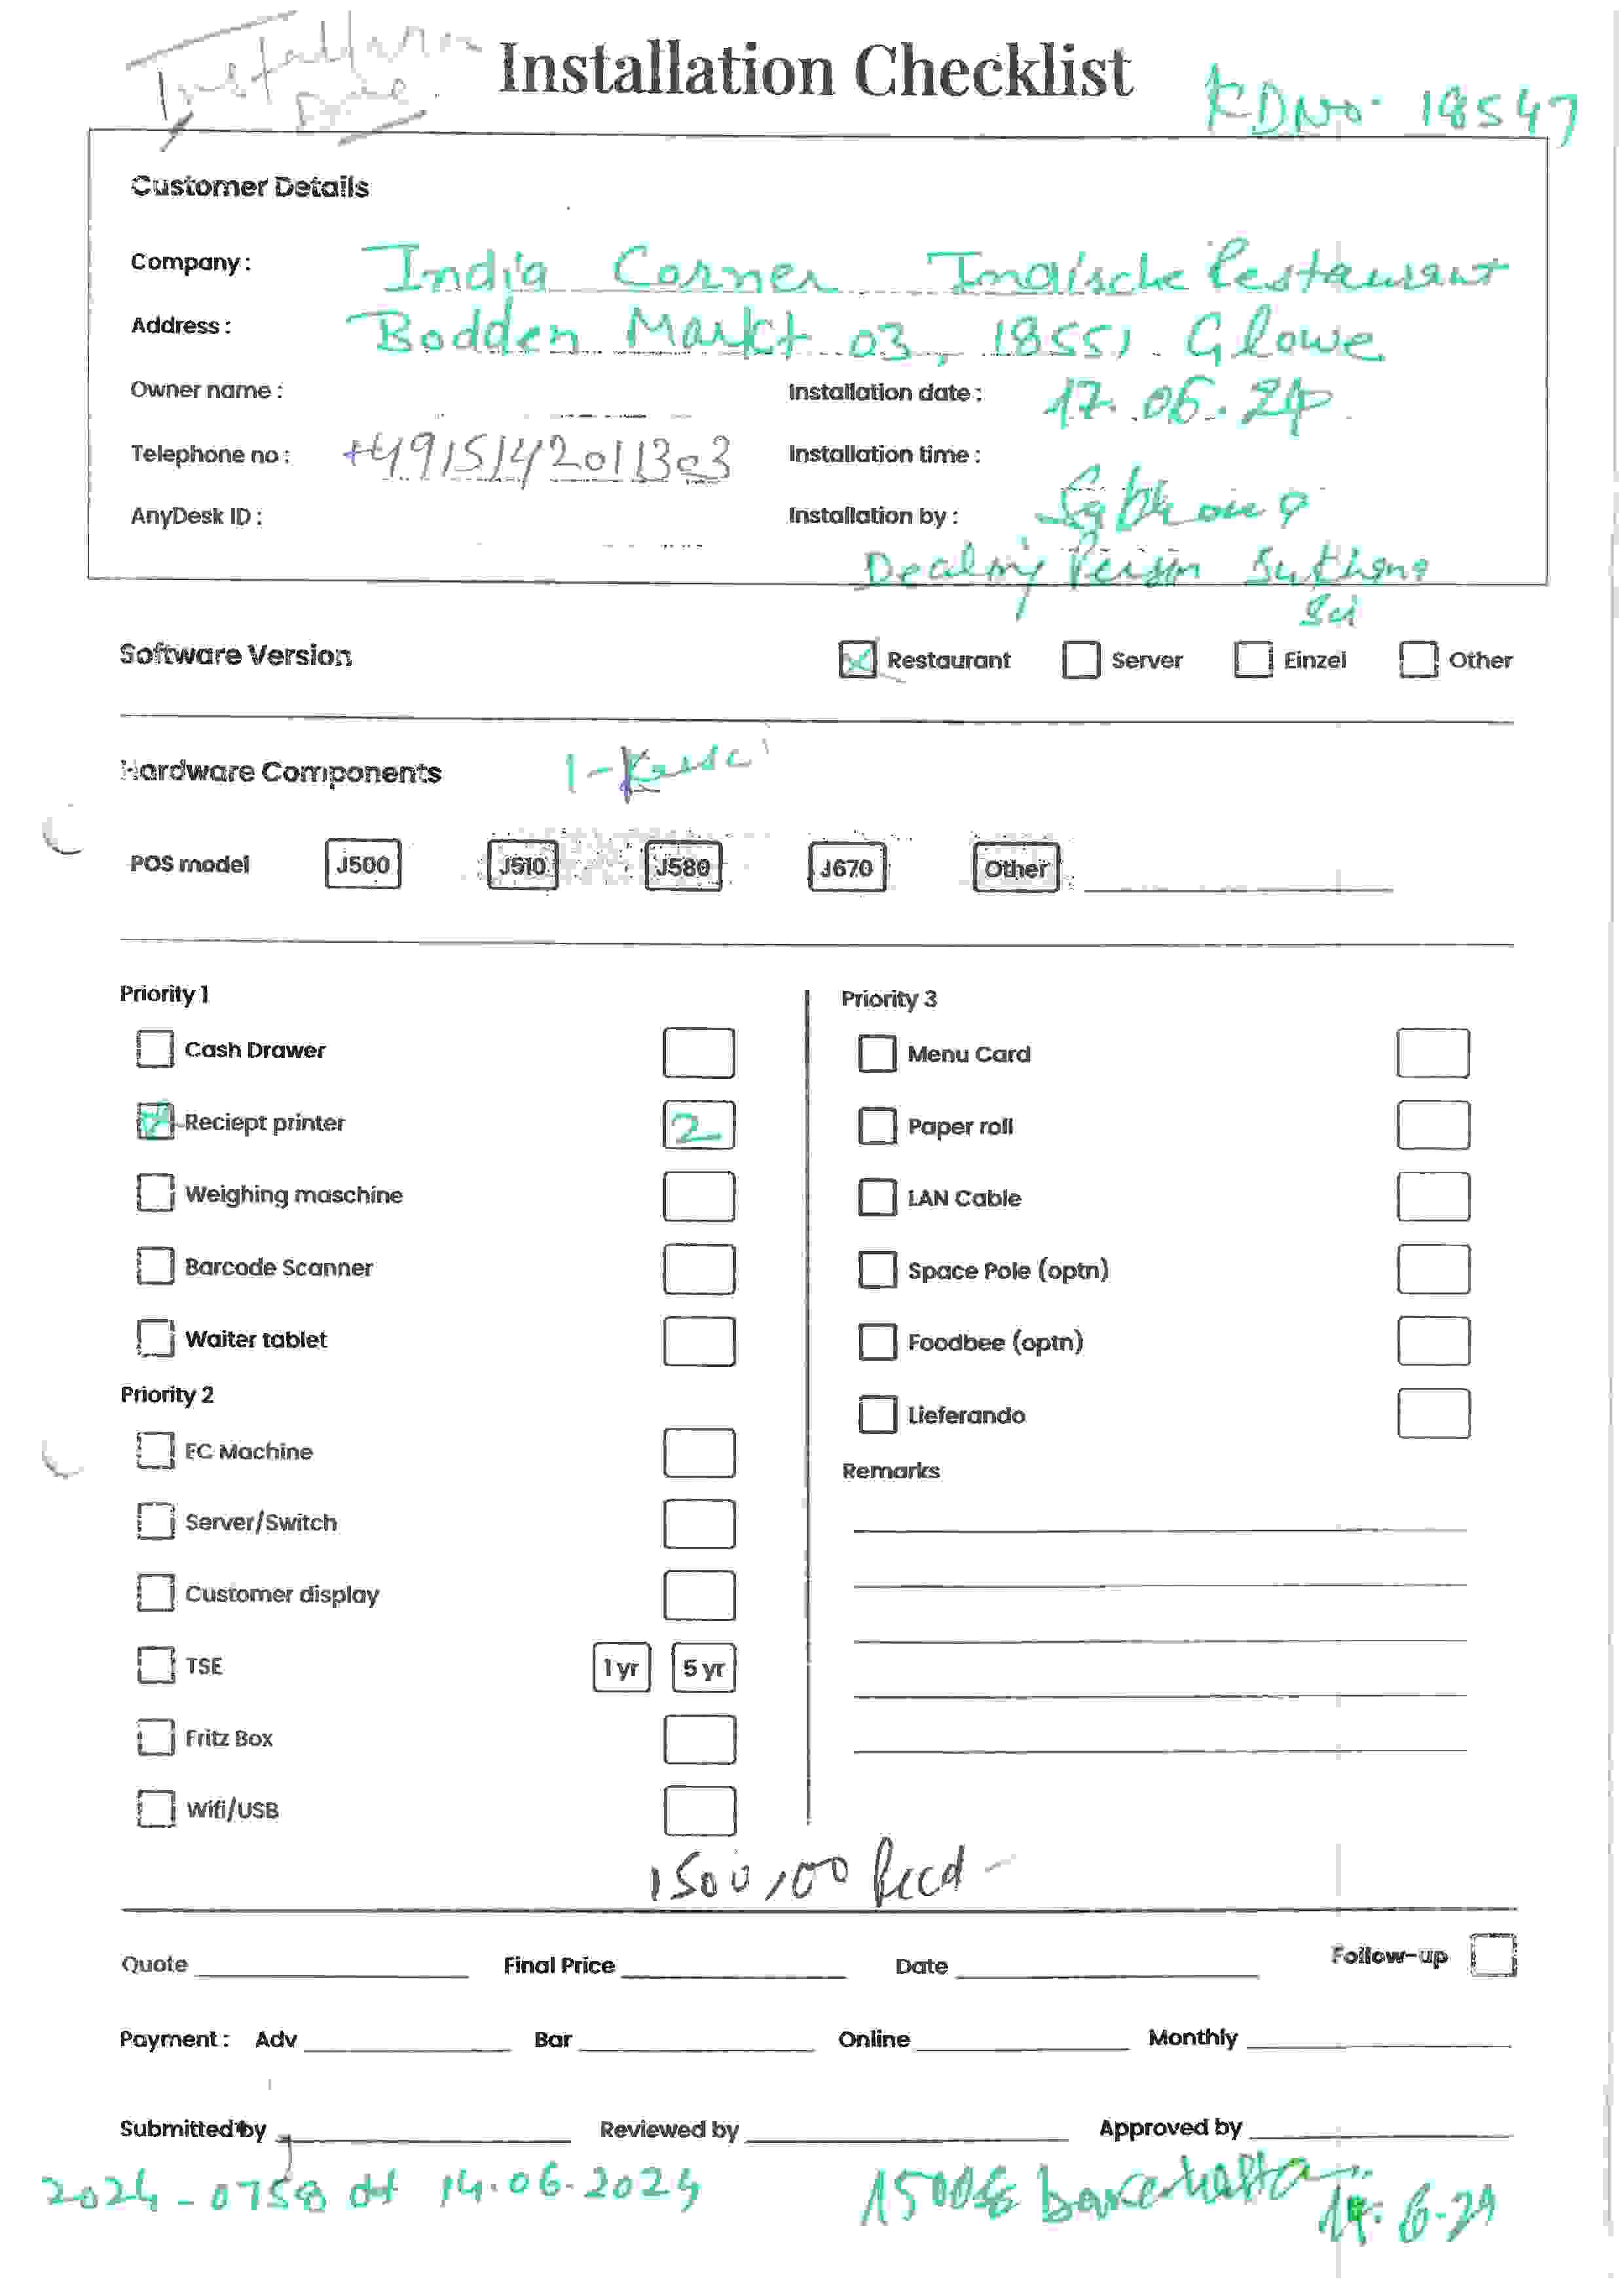 Installation Done.
Installation Checklist
KDNo. 18547
Customer Details
Company: India Corner Indische Restaurant
Address: Bodden Markt 03, 18551 Glowe
Owner name: Installation date: 17.06.24
Telephone no: +4915142011303 Installation time:
AnyDesk ID: Installation by:
Dealing Person
Software Version Restaurant Server Einzel Other
Hardware Components 1-
POS model J500 J510 J580 J670 Other
Priority 1
Cash Drawer
Reciept printer 2
Weighing maschine
Barcode Scanner
Waiter tablet
Priority 2
EC Machine
Server/Switch
Customer display
TSE 1 yr 5 yr
Fritz Box
Wifi/USB
Priority 3
Menu Card
Paper roll
LAN Cable
Space Pole (optn)
Foodbee (optn)
Lieferando
Remarks
1500,00 Recd-
Quote Final Price Date Follow-up
Payment: Adv Bar Online Monthly
Submitted by Reviewed by Approved by
2024-0758 dt 14.06.2024 1500€